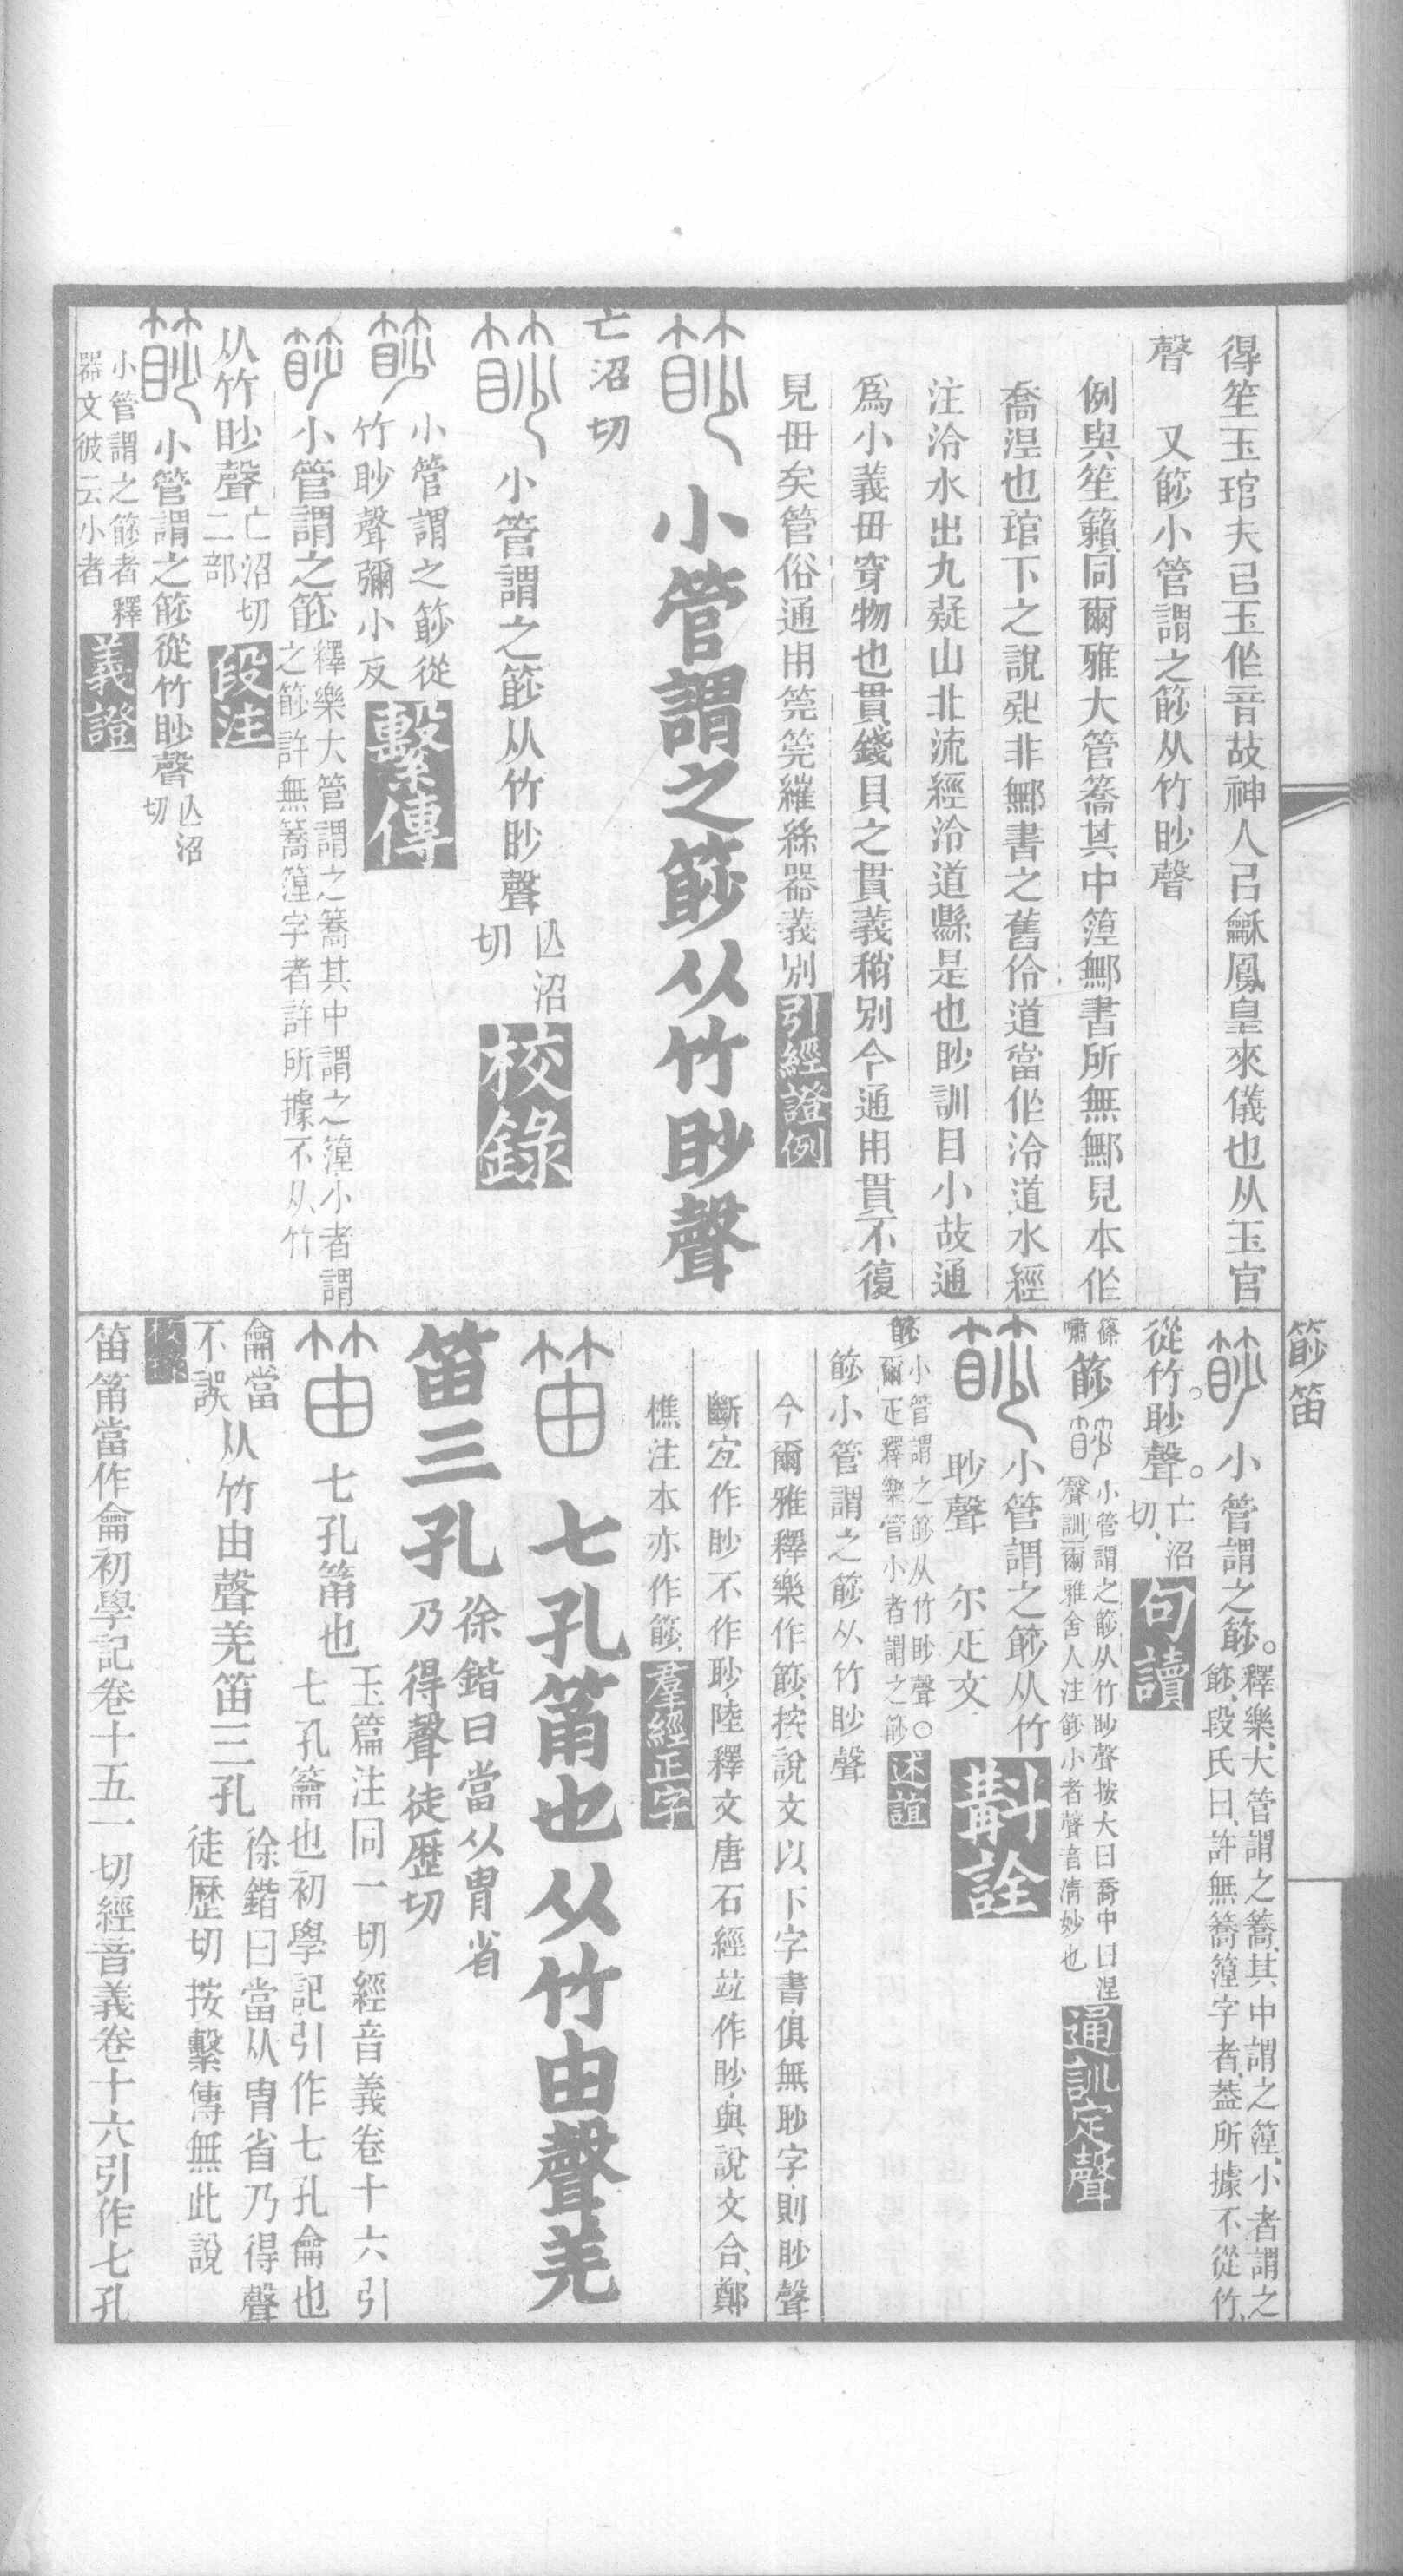 得笙玉琯夫㠯玉作音故神人㠯龢鳳皇來儀也从玉官
聲　又䈰小管謂之䈰从竹眇聲
例與笙籟同爾雅大管簥其中篞鄦書所無鄦見本作
喬涅也琯下之說非鄦書之舊伶道當作泠道水經
注泠水出九疑山北流經泠道縣是也眇訓目小故通
爲小義毌穿物也貫錢貝之貫義稍別今通用貫不復
見毌矣管俗通用筦筦維絲器義別引經證例
小管謂之䈰从竹眇聲
亡沼切
小管謂之䈰从竹眇聲
亾沼
切
校錄
小管謂之䈰從
竹眇聲彌小反
繫傳
小管謂之䈰
釋樂大管謂之簥其中謂之篞小者謂
之䈰許無簥篞字者許所據不从竹
从竹眇聲
亡沼切
二部
段注
小管謂之䈰從竹眇聲
亾沼
切
小管謂之䈰者釋
器文彼云小者
義證
䈰笛
小管謂之䈰。
釋樂、大管謂之簥、其中謂之篞、小者謂之
䈰、段氏曰、許無簥篞字者、蓋所據不從竹、
從竹。眇聲。
亡沼
切、
句讀
篠
嘯
䈰
小管謂之䈰从竹眇聲按大曰簥中曰涅
聲訓爾雅舍人注䈰小者聲音清妙也
通訓定聲
小管謂之䈰从竹
眇聲　尒疋文
斠詮
䈰
小管謂之䈰从竹眇聲○
爾疋釋樂管小者謂之䈰
述誼
䈰小管謂之䈰从竹眇聲
今爾雅釋樂作䈰、按說文以下字書俱無䏚字、則眇聲
斷宐作眇不作䏚、陸釋文唐石經竝作眇、與說文合、鄭
樵注本亦作䈰、羣經正字
七孔筩也从竹由聲羌
笛三孔
徐鍇曰當从胄省
乃得聲徒歷切
七孔筩也
玉篇注同一切經音義卷十六引
七孔籥也初學記引作七孔龠也
龠當
不誤
从竹由聲羌笛三孔
徐鍇曰當从冑省乃得聲
徒歷切按繫傳無此說
校錄
笛筩當作龠初學記卷十五一切經音義卷十六引作七孔